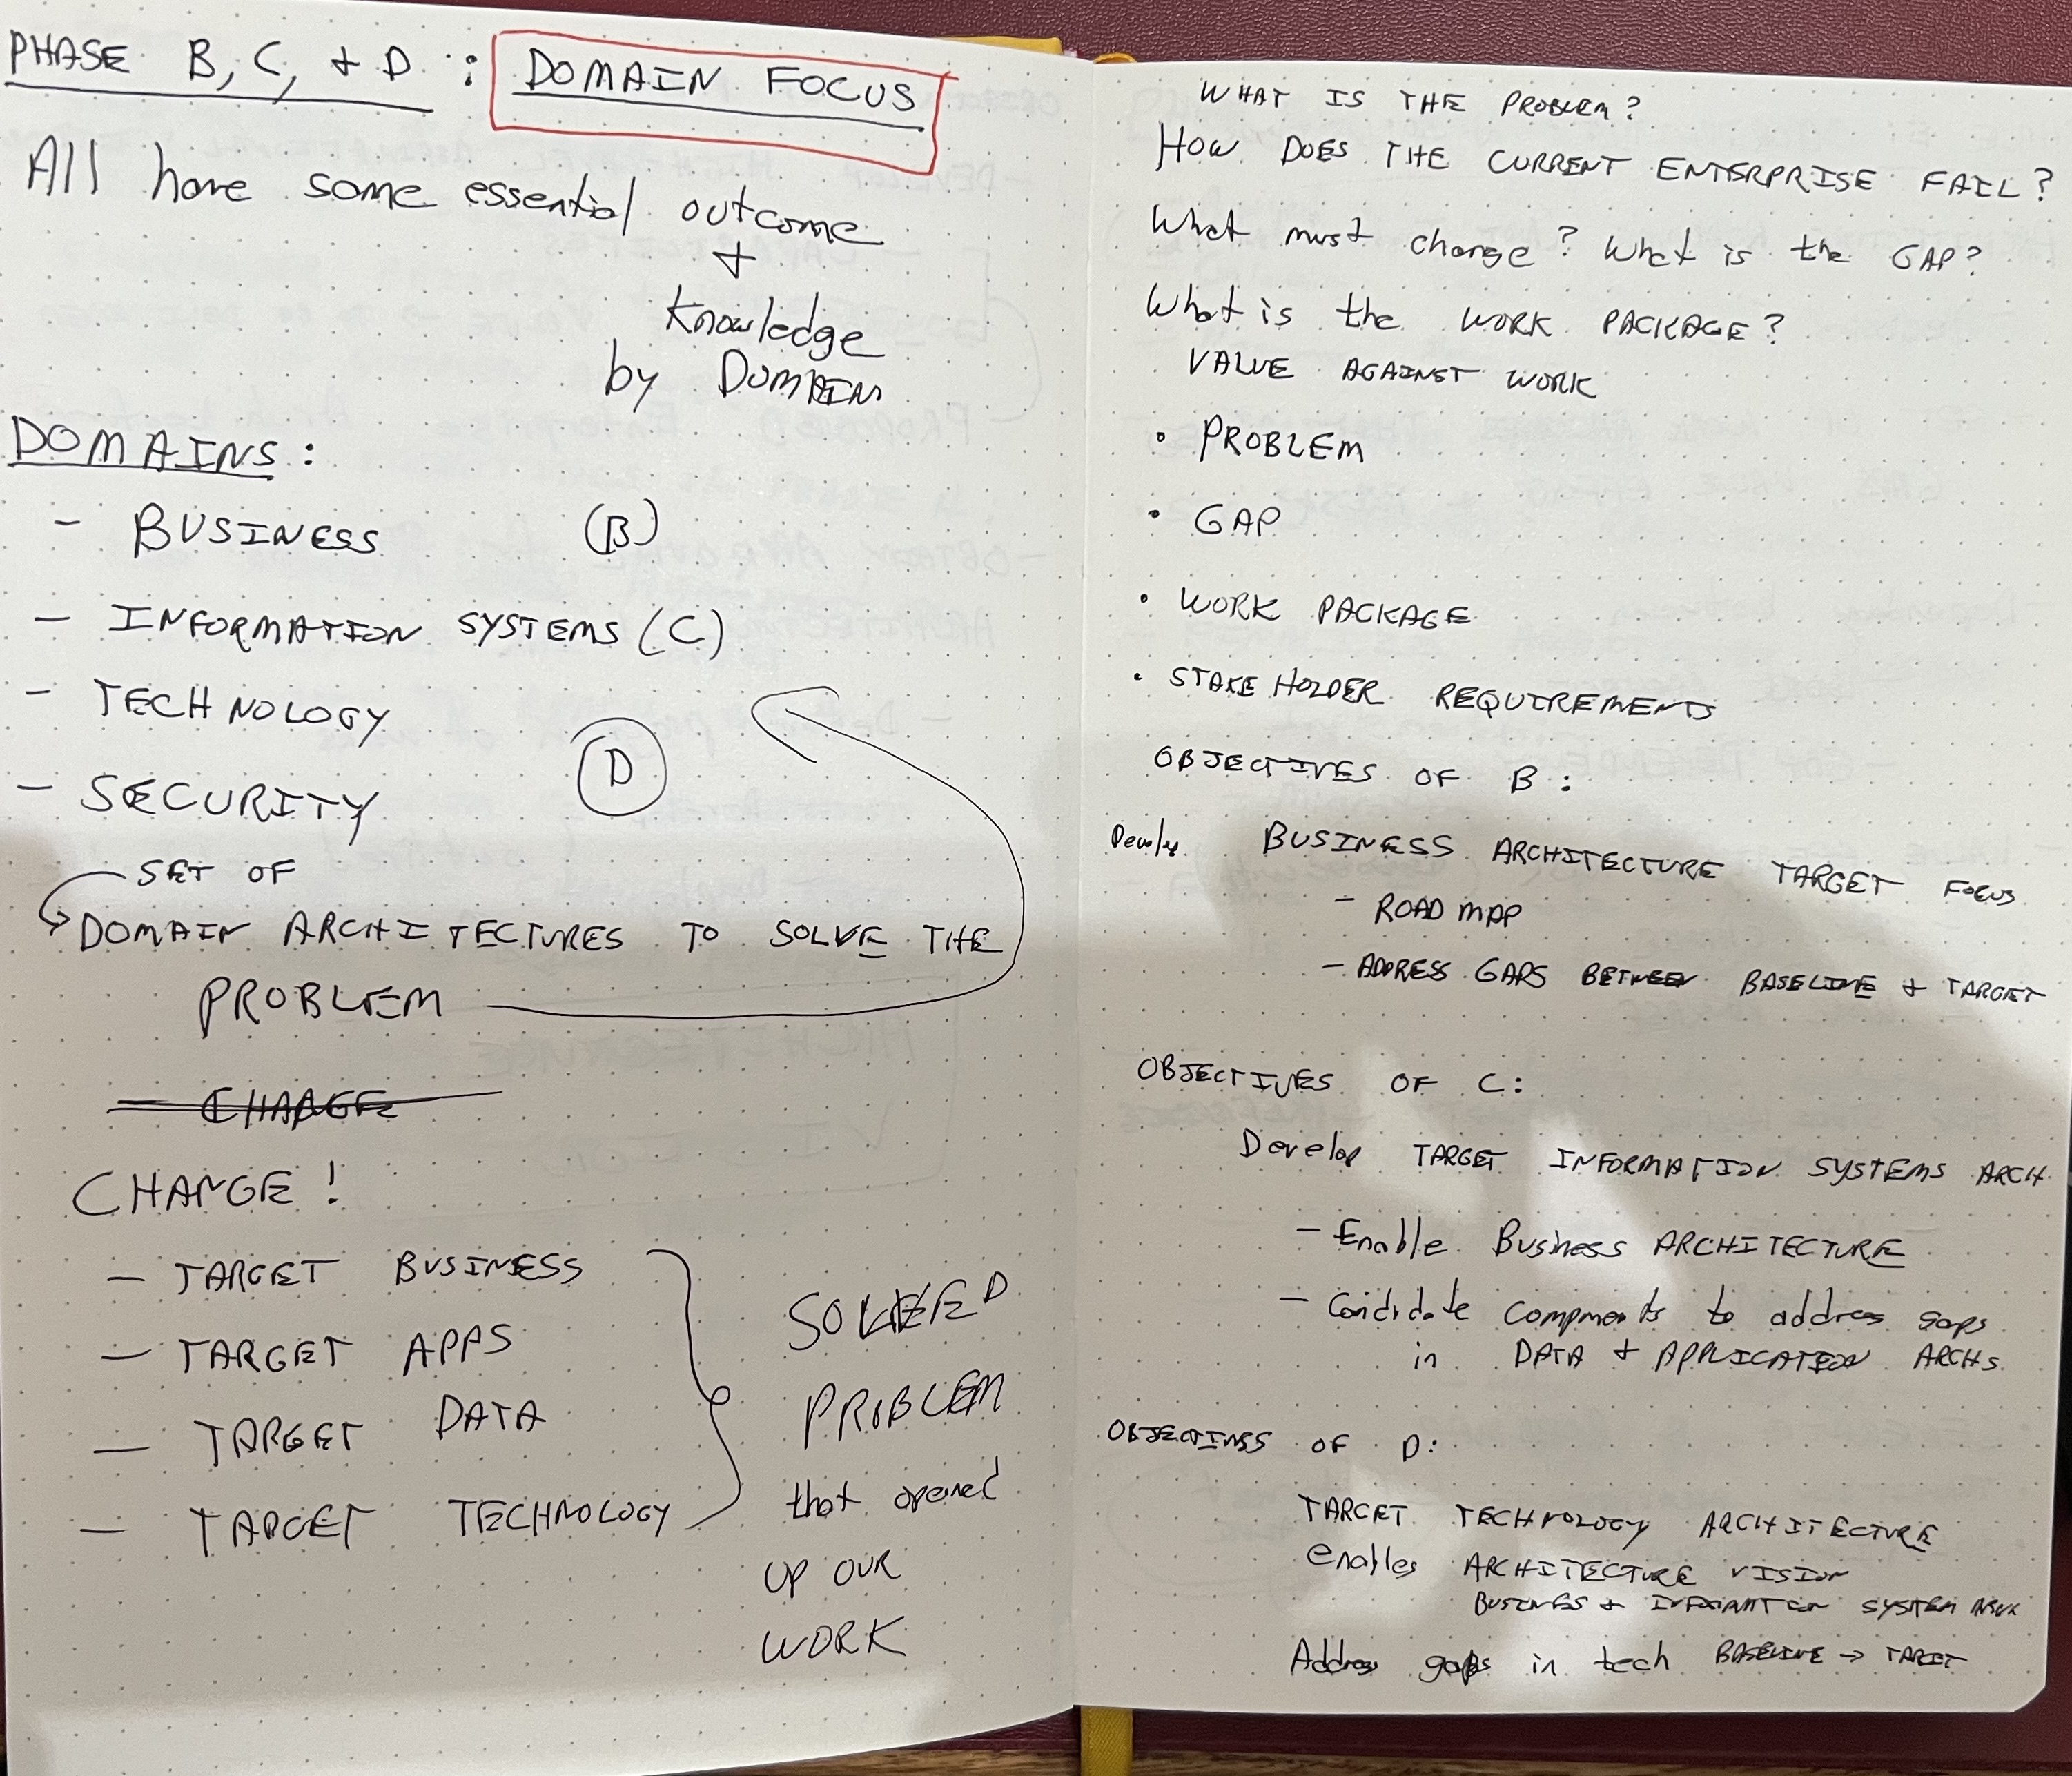 PHASE B, C, + D : DOMAIN FOCUS
All have some essential outcome
+
Knowledge
by DOMAIN
DOMAINS:
- BUSINESS (B)
- INFORMATION SYSTEMS (C)
- TECHNOLOGY
D
- SECURITY
SET OF
DOMAIN ARCHITECTURES TO SOLVE THE
PROBLEM
CHANGE
CHANGE!
- TARGET BUSINESS
- TARGET APPS
- TARGET DATA
- TARGET TECHNOLOGY
SOLVED
PROBLEM
that opened
UP OUR
WORK
WHAT IS THE PROBLEM?
HOW DOES THE CURRENT ENTERPRISE FAIL?
What must change? What is the GAP?
What is the WORK PACKAGE?
VALUE AGAINST WORK
• PROBLEM
• GAP
• WORK PACKAGE
• STAKEHOLDER REQUIREMENTS
OBJECTIVES OF B:
Develop BUSINESS ARCHITECTURE TARGET FOCUS
- ROADMAP
- ADDRESS GAPS BETWEEN BASELINE + TARGET
OBJECTIVES OF C:
Develop TARGET INFORMATION SYSTEMS ARCH
- Enable Business ARCHITECTURE
- Candidate components to address gaps
in DATA + APPLICATION ARCHS
OBJECTIVES OF D:
TARGET TECHNOLOGY ARCHITECTURE
enables ARCHITECTURE VISION
BUSINESS + INFORMATION SYSTEM
Address gaps in tech BASELINE → TARGET